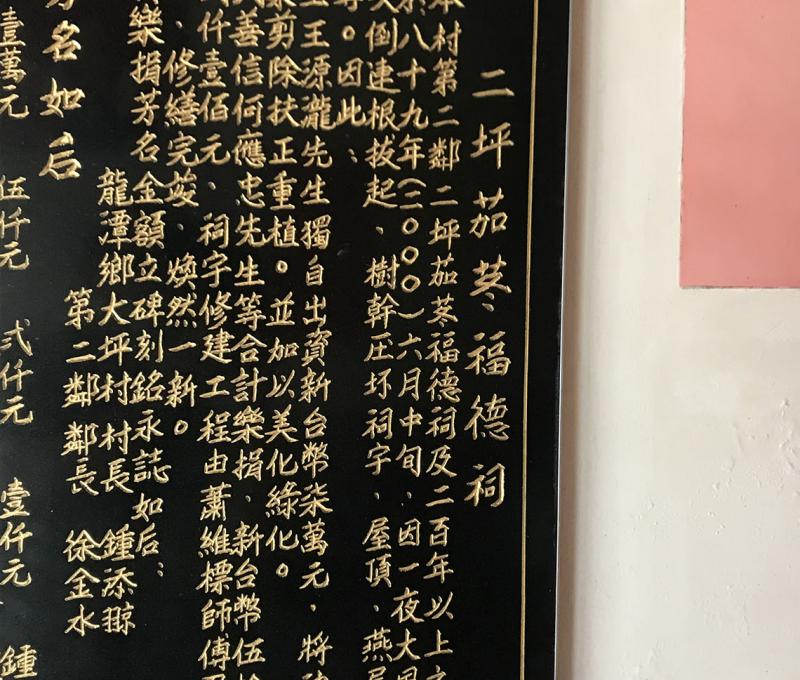 二坪茄苳福德祠
本村第二鄰二坪茄苳福德祠及二百年以上之
於八十九年(二〇〇〇)六月中旬、因一夜大風
倒連根拔起、樹幹圧坏祠宇、屋頂、燕尾
等。因此；
王源瀧先生獨自出資新台幣柒萬元，將
剪除扶正重植。並加以美化綠化。
善信何應忠先生等合計樂捐、新台幣伍
仟壹佰元、祠宇修建工程由蕭維標師傅
、修繕完竣、煥然一新。
樂捐芳名金額立碑刻銘永誌如后；
龍潭鄉大坪村村長 鍾添
第二鄰鄰長 徐金水
芳名如后
壹萬元 伍仟元 弍仟元 壹仟元 鍾